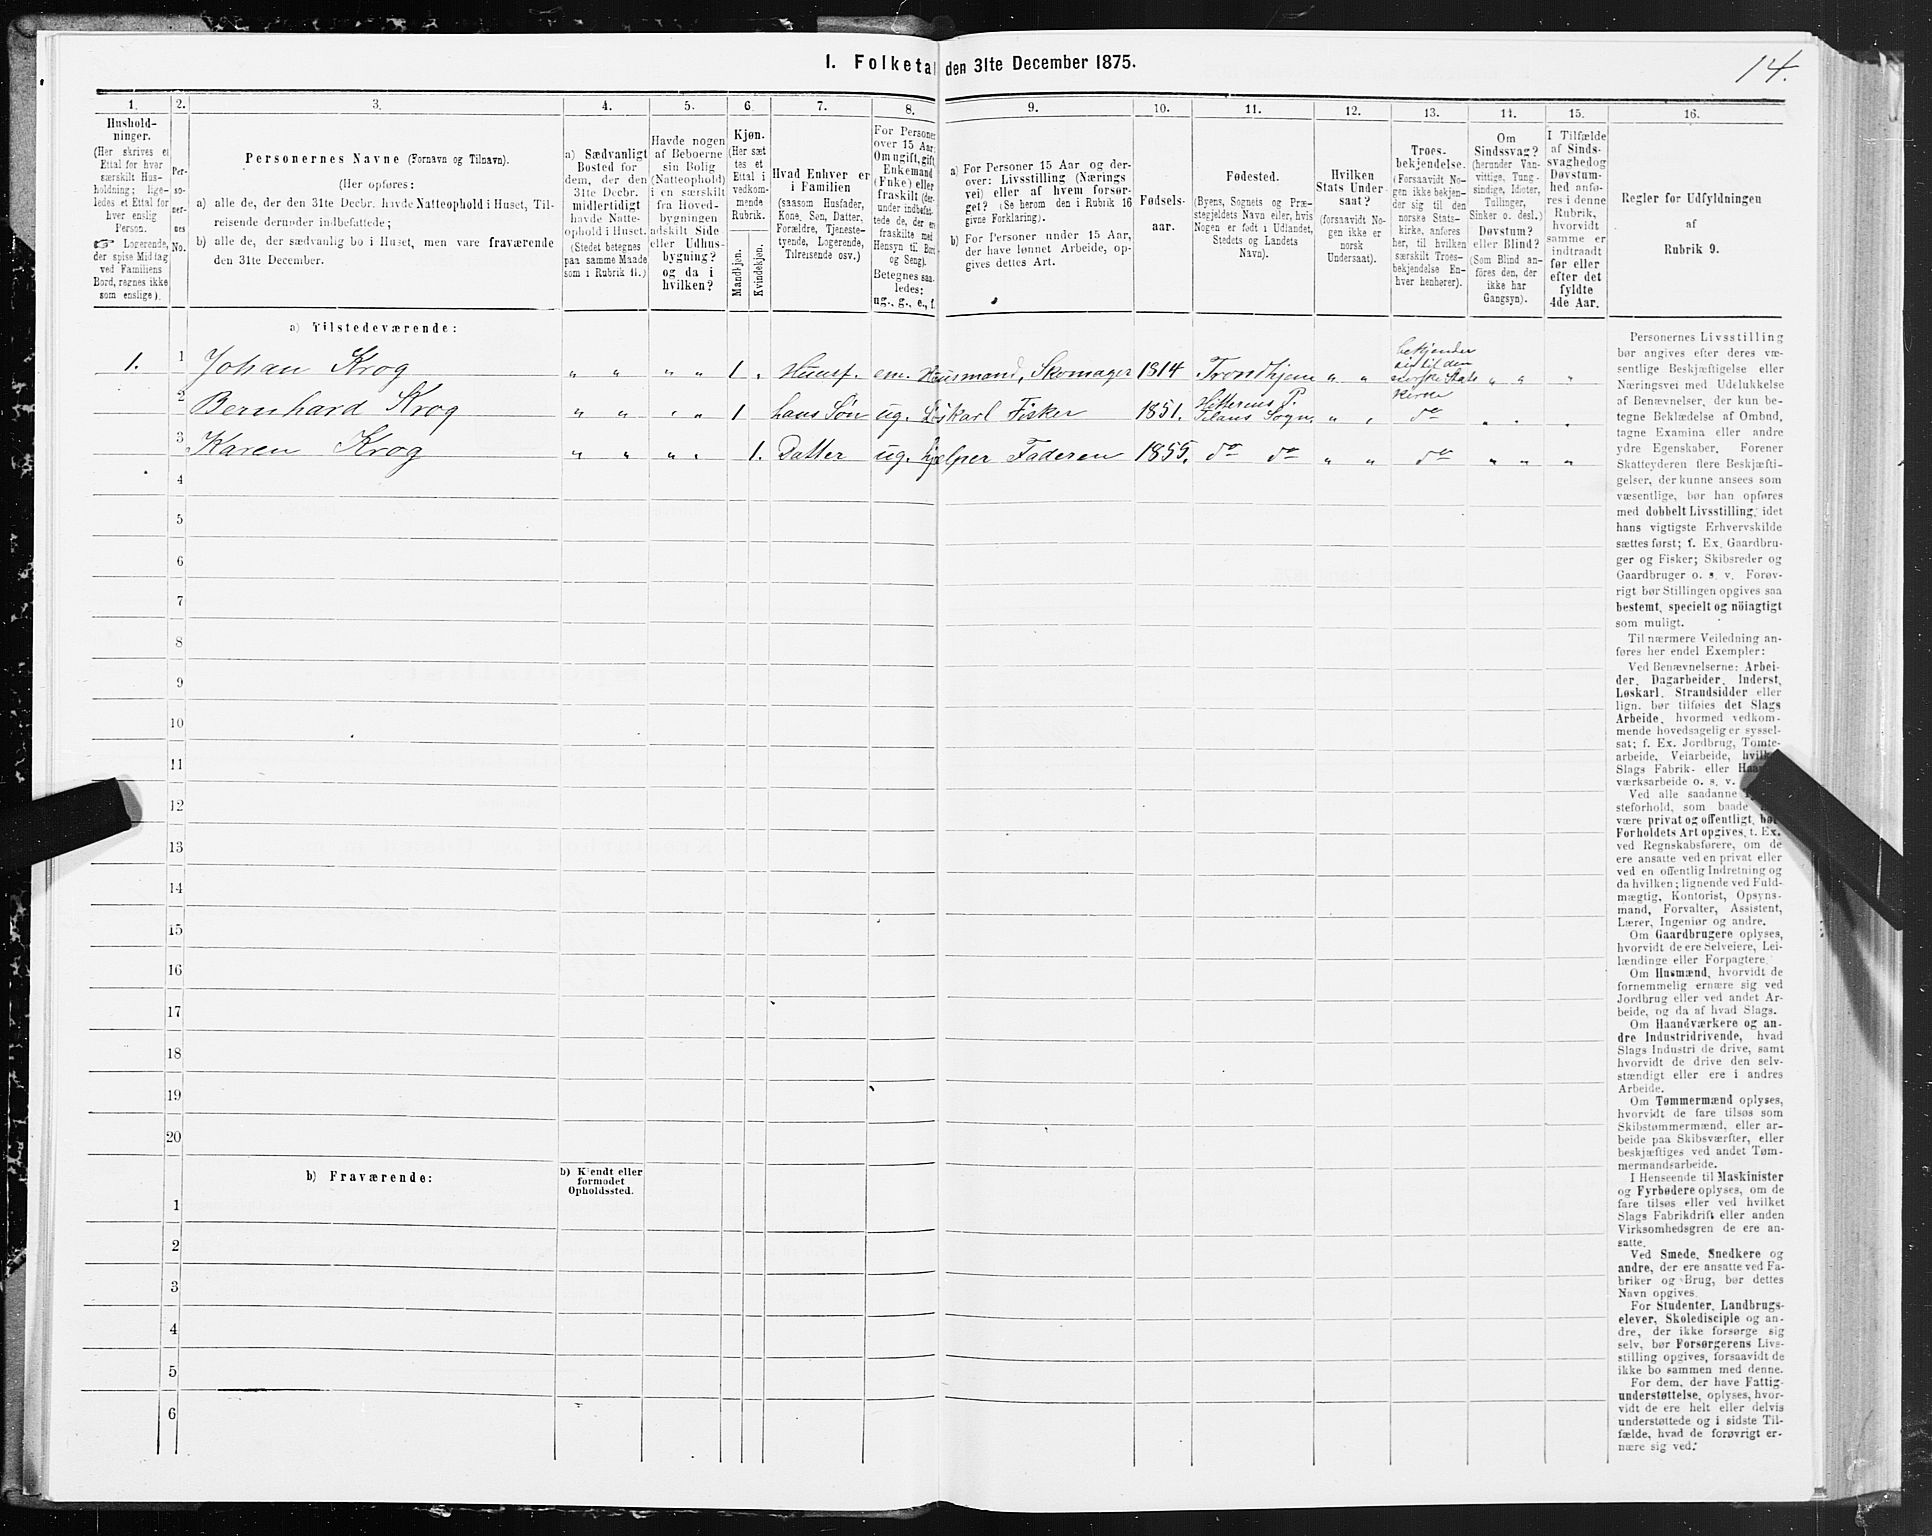 I. Folketal den 31te December 1875.
14.
1.
2.
3.
4.
5.
6.
7.
8.
9.
10.
11.
12.
13.
14.
15.
16.
Hushold-
ninger.
(Her skrives et
Ettal for hver
særskilt Hus-
holdning; lige-
ledes et Ettal for
hver enslig
Person.
☞ Logerende,
der spise Middag
ved Familiens
Bord, regnes ikke
som enslige).
Per-
so-
ner-
nes
No.
Personernes Navne (Fornavn og Tilnavn).
(Her opføres:
a) alle de, der den 31te Decbr. havde Natteophold i Huset, Til-
reisende derunder indbefattede;
b) alle de, der sædvanlig bo i Huset, men vare fraværende
den 31te December.
a) Sædvanligt
Bosted for
dem, der den
31te Decbr.
midlertidigt
havde Natte-
ophold i Huset.
(Stedet betegnes
paa samme Maade
som i Rubrik 11.)
Havde nogen
af Beboerne
sin Bolig
(Natteophold)
i en særskilt
fra Hoved-
bygningen
adskilt Side
eller Udhus-
bygning?
og da i
hvilken?
Kjøn.
(Her sæt
tes et
Ettal i
vedkom-
mende
Rubrik.
Mandkjøn.
Kvindekjøn.
Hvad Enhver er
i Familien
(saasom Husfader,
Kone, Søn, Datter,
Forældre, Tjeneste-
tyende, Logerende,
Tilreisende osv.)
For Personer
over 15 Aar:
Om ugift, gift,
Enkemand
(Enke) eller
fraskilt (der-
under indbefat-
tede de, der ere
fraskilte med
Hensyn til Bord
og Seng).
Betegnes saa-
ledes:
ug., g., e., f.
a) For Personer 15 Aar og der-
over: Livsstilling (Nærings
vei) eller af hvem forsør-
get? (Se herom den i Rubrik 16
givne Forklaring).
b) For Personer under 15 Aar,
der have lønnet Arbeide, op-
gives dettes Art.
Fødsels-
aar.
Fødested.
(Byens, Sognets og Præ-
stegjeldets Navn eller, hvis
Nogen er født i Udlandet,
Stedets og Landets
Navn).
Hvilken
Stats Under-
saat?
(forsaavidt No-
gen ikke er
norsk
Undersaat).
Troes-
bekjendelse.
(Forsaavidt No-
gen ikke bekjen-
der sig til den
norske Stats-
kirke, anføres
her, til hvilken
særskilt Troes-
bekjendelse En-
hver henhører).
Om
Sindssvag?
(herunder Van-
vittige, Tung-
sindige, Idioter,
Tullinger,
Sinker o. desl.)
Døvstum?
eller Blind?
(Som Blind an-
føres den, der
ikke har
Gangsyn).
I Tilfælde
af Sinds-
svaghed og
Døvstum-
hed anfø-
res i denne
Rubrik,
hvorvidt
samme er
indtraadt
før eller
efter det
fyldte
4de Aar.
Regler for Udfyldningen
af
Rubrik 9.
a) Tilstedeværende:
1. 1 Johan Krog „ „ „ „ 1 „ Huusf. em. Huusmand, Skomager 1814 Trondhjem „ „ bekjender sig til den norske Stats Kirke „ „ „
2 Bernhard Krog „ „ „ „ 1 hans Søn ug. Løskarl Fisker 1851. Hitterens P. Filans Sogn. „ „ do „ „ „
3 Karen Krog „ „ „ „ 1. Datter ug. hjælper Faderen 1855. do do „ „ do „ „ „
4
5
6
7
8
9
10
11
12
13
14
15
16
17
18
19
20
b) Fraværende:
b) Kjendt eller
formodet
Opholdssted.
1
2
3
4
5
6
Personernes Livsstilling
bør angives efter deres væ-
sentlige Beskjæftigelse eller
Næringsvei med Udelukkelse
af Benævnelser, der kun be-
tegne Beklædelse af Ombud,
tagne Examina eller andre
ydre Egenskaber. Forener
Skatteyderen flere Beskjæfti-
gelser, der kunne ansees som
væsentlige, bør han opføres
med dobbelt Livsstilling, idet
hans vigtigste Erhvervskilde
sættes først; f. Ex. Gaardbru-
ger og Fisker; Skibsreder og
Gaardbruger o. s. v. Forøv-
rigt bør Stillingen opgives saa
bestemt, specielt og nöiagtigt
som muligt.
Til nærmere Veiledning an-
føres her endel Exempler:
Ved Benævnelserne: Arbei-
der, Dagarbeider, Inderst,
Løskarl, Strandsidder eller
lign. bør tilføies det Slags
Arbeide, hvormed vedkom-
mende hovedsagelig er syssel-
sat; f. Ex. Jordbrug, Tomte-
arbeide, Veiarbeide, hvilket
Slags Fabrik- eller Haand-
værksarbeide o. s. v.
Ved alle saadanne
steforhold, som baade
være privat og offentligt, bør
Forholdets Art opgives, t. Ex.
ved Regnskabsførere, om de
ere ansatte ved en privat eller
ved en offentlig Indretning og
da hvilken; lignende ved Fuld-
mægtig, Kontorist, Opsyns-
mand, Forvalter, Assistent,
Lærer, Ingeniør og andre.
Om Gaardbrugere oplyses,
hvorvidt de ere Selveiere, Lei-
lændinge eller Forpagtere.
Om Husmænd, hvorvidt de
fornemmelig ernære sig ved
Jordbrug eller ved andet Ar-
beide, og da af hvad Slags.
Om Haandværkere og an-
dre Industridrivende, hvad
Slags Industri de drive, samt
hvorvidt de drive den selv-
stændigt eller ere i andres
Arbeide.
Om Tømmermænd oplyses,
hvorvidt de fare tilsøs som
Skibstømmermænd, eller ar-
beide paa Skibsværfter, eller
beskjæftiges ved andet Tøm-
mermandsarbeide.
I Henseende til Maskinister
og Fyrbødere oplyses, om de
fare tilsøs eller ved hvilket
Slags Fabrikdrift eller anden
Virksomhedsgren de ere an-
satte.
Ved Smede, Snedkere og
andre, der ere ansatte ved Fa-
briker og Brug, bør dettes
Navn opgives.
For Studenter, Landbrugs-
elever, Skoledisciple og an-
dre, der ikke forsørge sig
selv, bør Forsørgerens Livs-
stilling opgives, forsaavidt de
ikke bo sammen med denne.
For dem, der have Fattig-
understøttelse, oplyses, hvor-
vidt de ere helt eller delvis
understøttede og i sidste Til-
fælde, hvad de forøvrigt er-
nære sig ved.